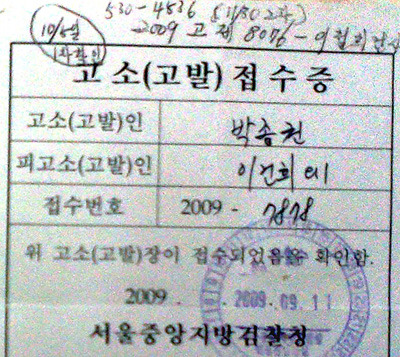 530-4536
10/5일 2009 고제 8076 - 이협희
1차확인
고 소(고발) 접 수 증
고소(고발)인 박종권
피고소(고발)인 이건희 외 1
접수번호 2009 - 7878
위 고소(고발)장이 접수되었음을 확인함.
2009 . 2009. 09. 11
서울중앙지방검찰청